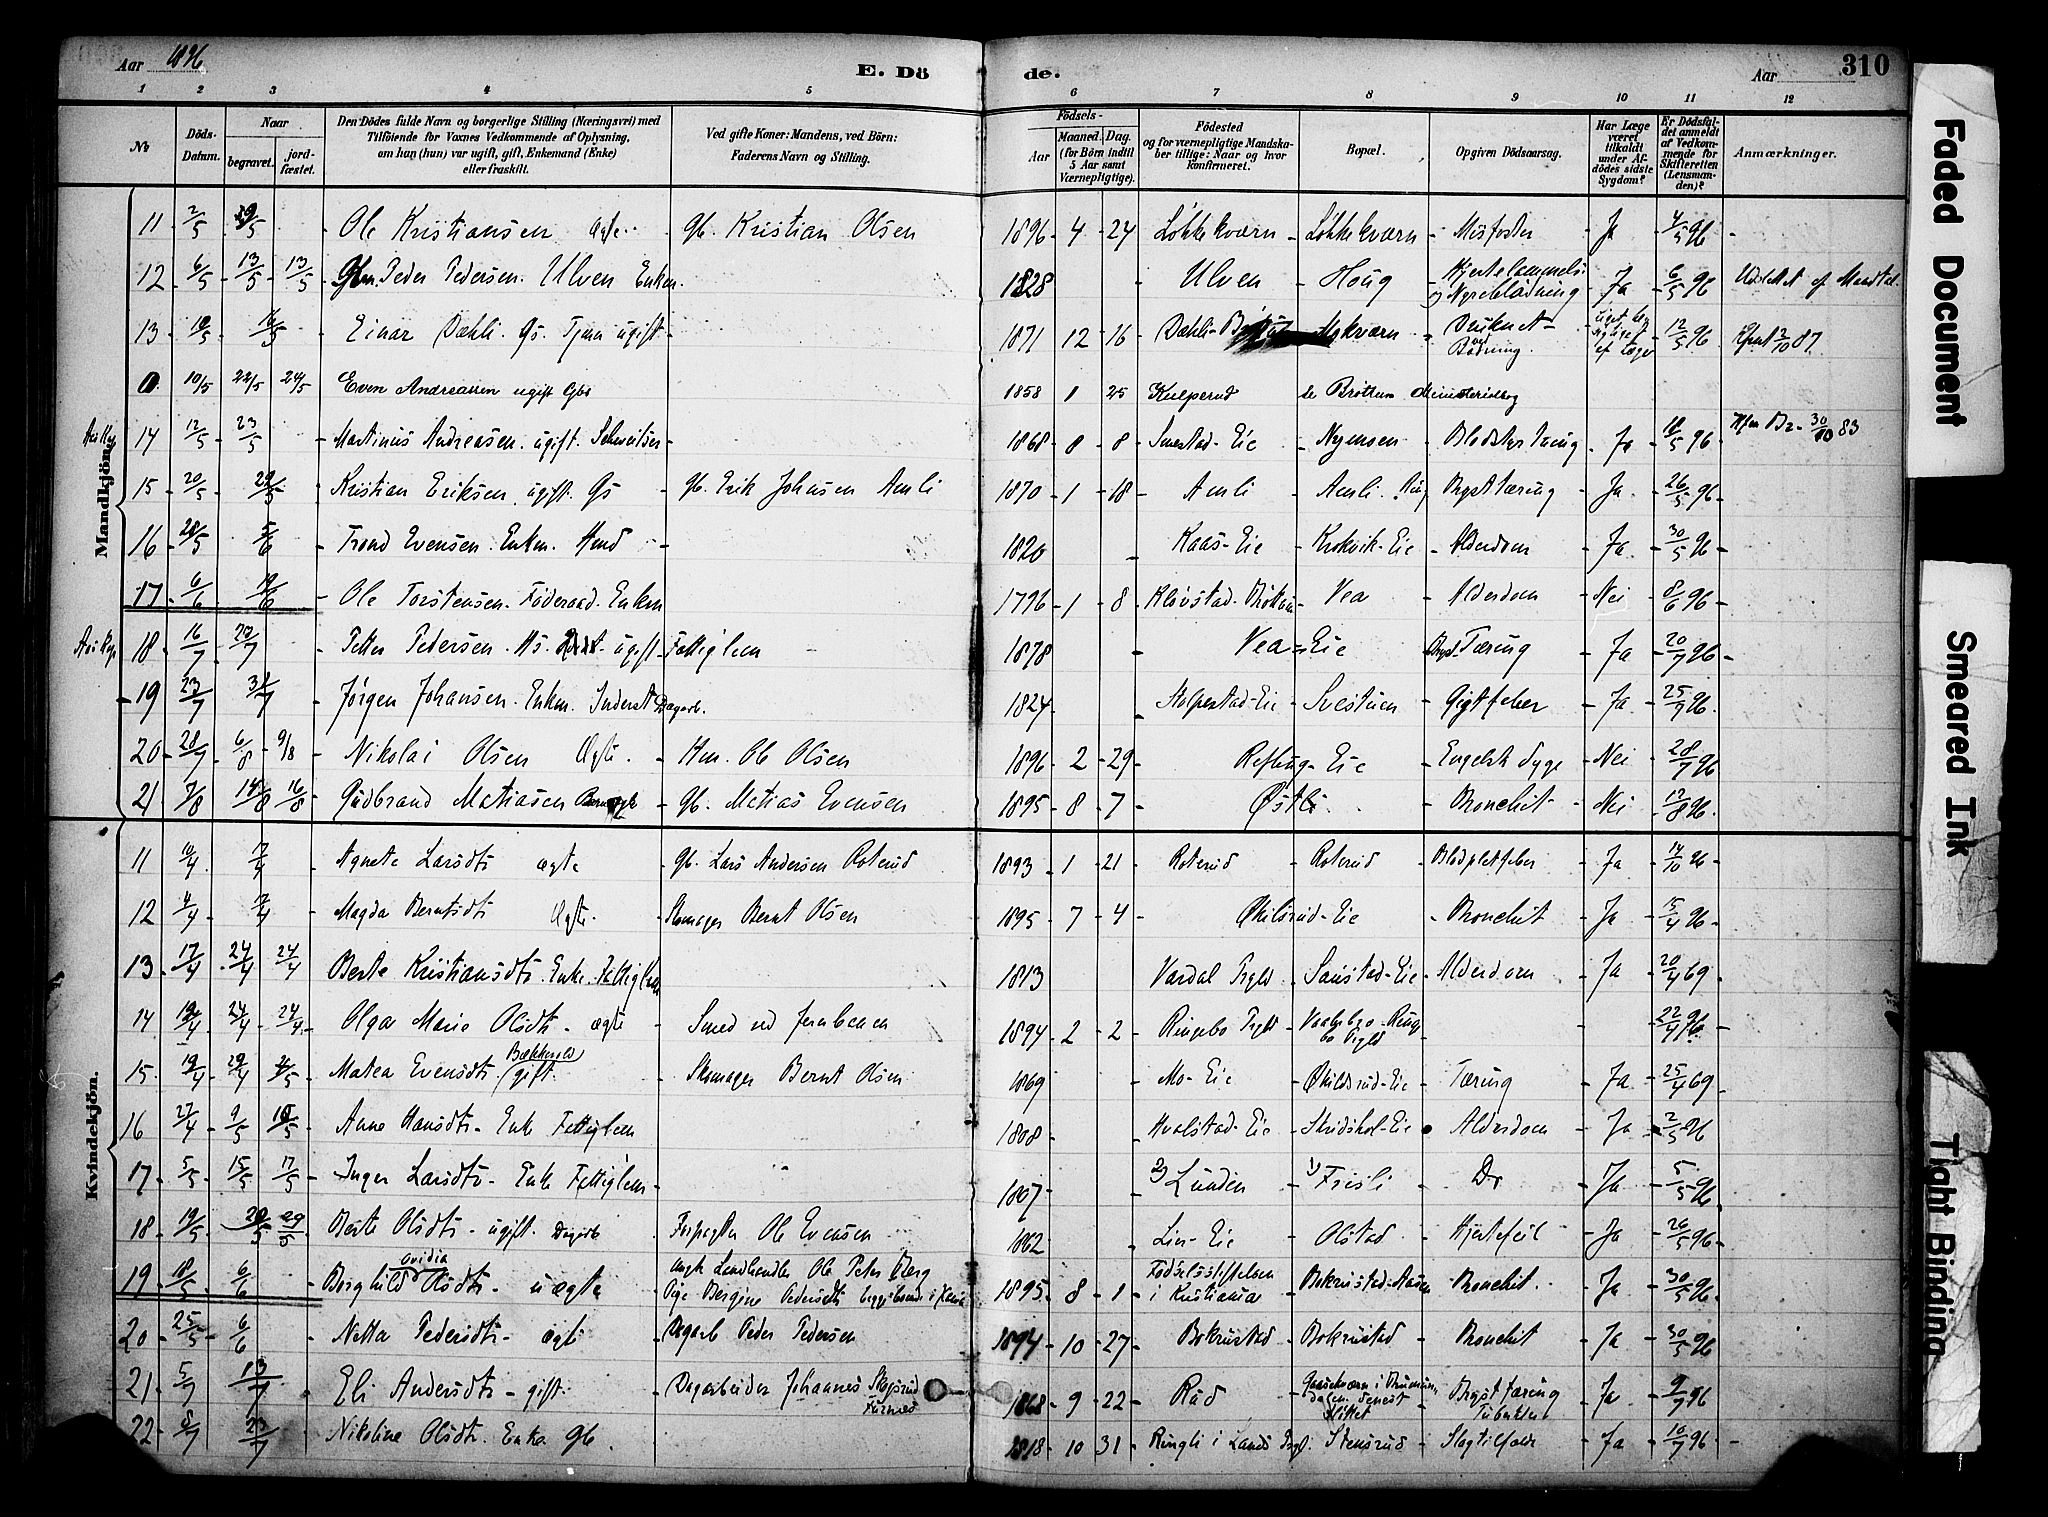 Aar 1896
E. Dö
de.
Aar
310
1 2 3 4 5 6 7 8 9 10 11 12
No
Döds-Datum.
Naar
begravet.
jord-fæstet.
Den Dödes fulde Navn og borgerlige Stilling (Næringsvei) med
Tilföiende for Voxnes Vedkommende af Oplysning,
om han (hun) var ugift, gift, Enkemand (Enke)
eller fraskilt.
Ved gifte Koner: Mandens, ved Börn:
Faderens Navn og Stilling.
Födsels-
Aar
Maaned. Dag.
(for Börn indtil
5 Aar samt
Værnepligtige).
Födested
og for værnepligtige Mandska-
ber tillige: Naar og hvor
konfirmeret.
Bopæl.
Opgiven Dödsaarsag.
Har Læge
været
tilkaldt
under Af-
dödes sidste
Sygdom?
Er Dödsfal-
det anmeldt
af Vedkom-
mende for
Skifteretten
(Lensman-
den)?
Anmærkninger.
Mandkjön.
11 2/5 Ole Kristiansen Ægte Gb. Kristian Olsen 1896 - 4 - 24 Løkkekværn - Løkkekværn - Misfoster - Ja - 4/5 96 -
12 6/5 13/5 13/5 Gbm. Peder Pedersen Ulven Enkem. 1828 Ulven - Houg - Hjertelammelse og Nyreblødning - Ja - 6/5 96 Udslettet af Mandtal
13 Einar Dæhli Gs. ugift 1871 12 - 16 Dæhli - Mykværn - Druknet ved Badning - 12/5 96
10/5 22/5 24/5 Even Andreassen ugift Gbs 1858 1 25 Kulperud se Brøttum Ministerialbog
14 12/5 23/5 Martinus Andreasen ugift Schweitser 1868 - 8 - 8 Smestad-Eie - Nyensen - Blodstyrtning - Ja 96 30/10 83
15 20/5 29/5 Kristian Eriksen ugift Gs - Gb. Erik Johnsen Amli 1870 - 1 - 18 Amli - Amli - Brysttæring - Ja - 26/5 96
16 28/5 5/6 Trond Evensen Enkm. - 1820 Kaas-Eie - Krokvik-Eie - Alderdom - Ja - 30/5 96 -
17 6/6 Ole Torstensen Føderaad Enkem 1796 - 1 - 8 Kløvstad - Vea - Alderdom - Nei - 8/6 96 -
18 16/7 23/7 Petter Pedersen Hs. ugift - Fattiglem 1878 Vea-Eie Bryst-Tæring - Ja - 20/7 96
19 23/7 31/7 Jørgen Johansen Enkm. Inderst Dagarb. 1824 Stolpestad-Eie - Svestuen - Gigtfeber - Ja - 25/7 96
20 28/7 6/8 9/8 Nikolai Olsen Ægte - Hm. Ole Olsen 1896 - 2 - 29 Refling-Eie - Engelsk Syge - Nei - 28/7 96
21 7/8 15/8 16/8 Gudbrand Matiasen Gb. Matias Evensen 1895 - 8 - 7 Østli - Bronchit - Nei - 12/8 96
Kvindekjön.
11 Agnete Larsdtr ægte - Gb. Lars Andersen Roterud 1893 - 1 - 21 Roterud - Roterud - Blodpletfeber - Ja 96
12 4/4 7/4 Magda Berntsdtr Ægte - Skomager Bernt Olsen 1895 - 7 - 4 Økilsrud-Eie - Bronchit - Ja - 15/4 96
13 17/4 24/4 24/4 Berte Kristiansdtr Enke Fattiglem 1813 Vardal Prgld - Sanstad-Eie - Alderdom - Ja - 20/4 69
14 19/4 24/4 24/4 Olga Marie Olsdtr - ægte - Smed ved Jernbanen 1894 - 2 - 2 Ringebo Prgld - Vaalebro - Ringebo Prgld 22/4 96
15 19/4 29/4 Matea Evensdtr Bækkerud gift - Skomager Bernt Olsen 1869 Mo-Eie - Økildsrud-Eie - Tæring - Ja - 25/4 69
16 27/4 9/5 10/5 Anne Hansdtr - Enke Fattiglem 1808 Hvalstad-Eie - Skridshol-Eie Alderdom - Ja 2/5 96
17 5/5 15/5 17/5 Inger Larsdtr - Enke Fattiglem 1807 2) Lunden 1) Frisli Do Ja 5/5 96
18 19/5 29/5 29/5 Berte Olsdtr - ugift Dagarb - Forpagter Ole Evensen 1862 Lier-Eie - Olstad - Hjertefeil - Ja - 26/5 96
19 18/5 6/6 Borghild Ovidia Olsdtr - uægte - ungk Landhandler Ole Peter Berg Pige Bergine Pedersdtr 1895 - 8 - 1 Fødselsstiftelsen i Kristiania - Bokrustad - Bronchit - Ja - 30/5 96
20 25/5 6/6 Netta Pedersdtr - ægte - Dagarb Peder Pedersen 1894 - 10 - 27 Bokrustad - Bokrustad - Bronchit - Ja - 30/5 96
21 5/7 13/7 Eli Andersdtr - gift - Dagarbeider Johannes Skogsrud Furnes 1868 - 9 - 22 Rud - Brysttæring Tuberkler - Ja - 9/7 96
22 23/7 Nikoline Olsdtr. Enke Gb. 1818 - 10 - 31 Ringli i Lands Prgl. Stensrud - Slagtilfælde - Ja - 10/7 96 -
Faded Document
Smeared Ink
Tight Binding